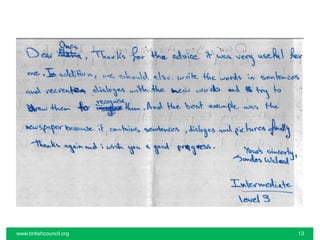 Dear Ines, Thanks for the advice it was very useful for
me. In addition, we should also write the words in sentences
and recreaten dialoges with the new words and try to
draw them to recognise them. And the best example was the
newspaper because it contains sentences, dialoges and pictures finally
Thanks again and i wish you a good progress.
Yours sincerely,
Sondes
Intermediate
level 3
www.britishcouncil.org
13